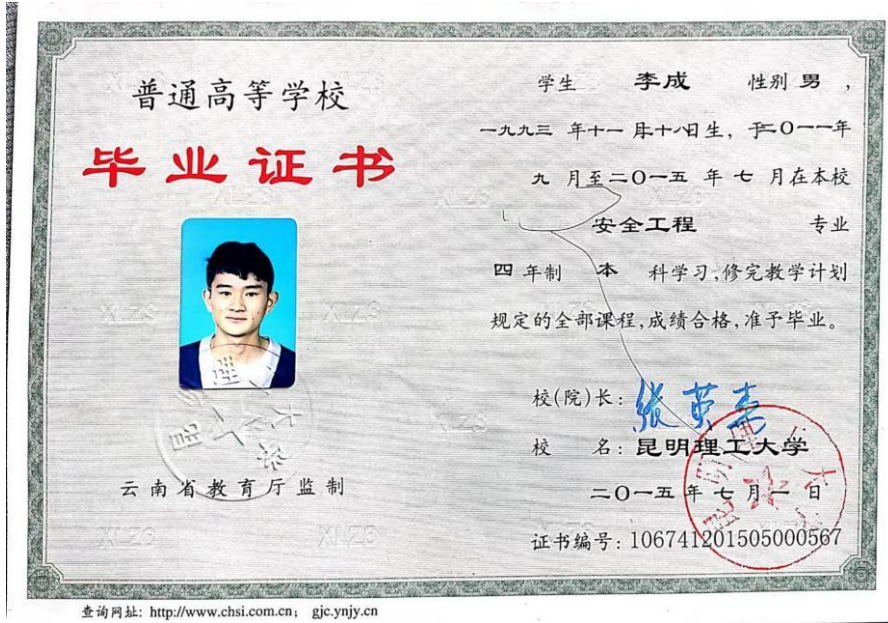 普通高等学校
毕业证书
云南省教育厅监制
学生 李成 性别 男 ,
一九九三 年十一 月十八日生, 于二〇一一年
九 月至二〇一五 年 七 月在本校
安全工程 专业
四 年制 本 科学习,修完教学计划
规定的全部课程,成绩合格,准予毕业。
校(院)长: 张英杰
校 名: 昆明理工大学
二〇一五 年 七 月 一 日
证书编号: 106741201505000567
查询网址: http://www.chsi.com.cn; gjc.ynjy.cn
XLZS
昆明理工大学